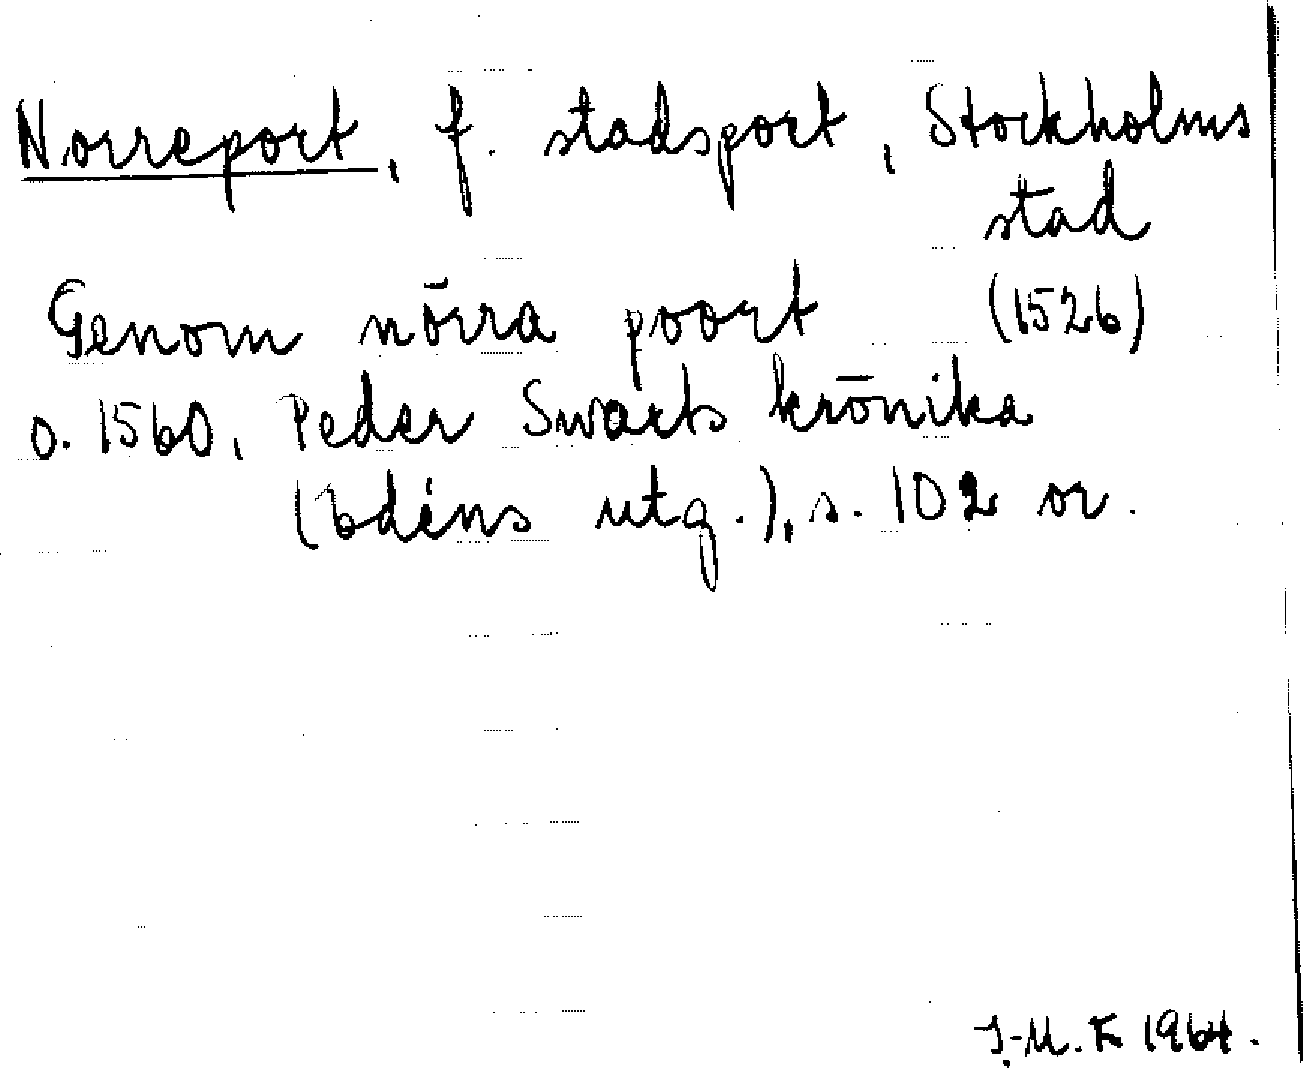 Norreport, f. stadsport, Stockholms
stad
Genom nörra poort (1526)
o. 1560, Peder Swarts krönika
(Edéns utg.), s. 102 or.
J.-M. F 1964.